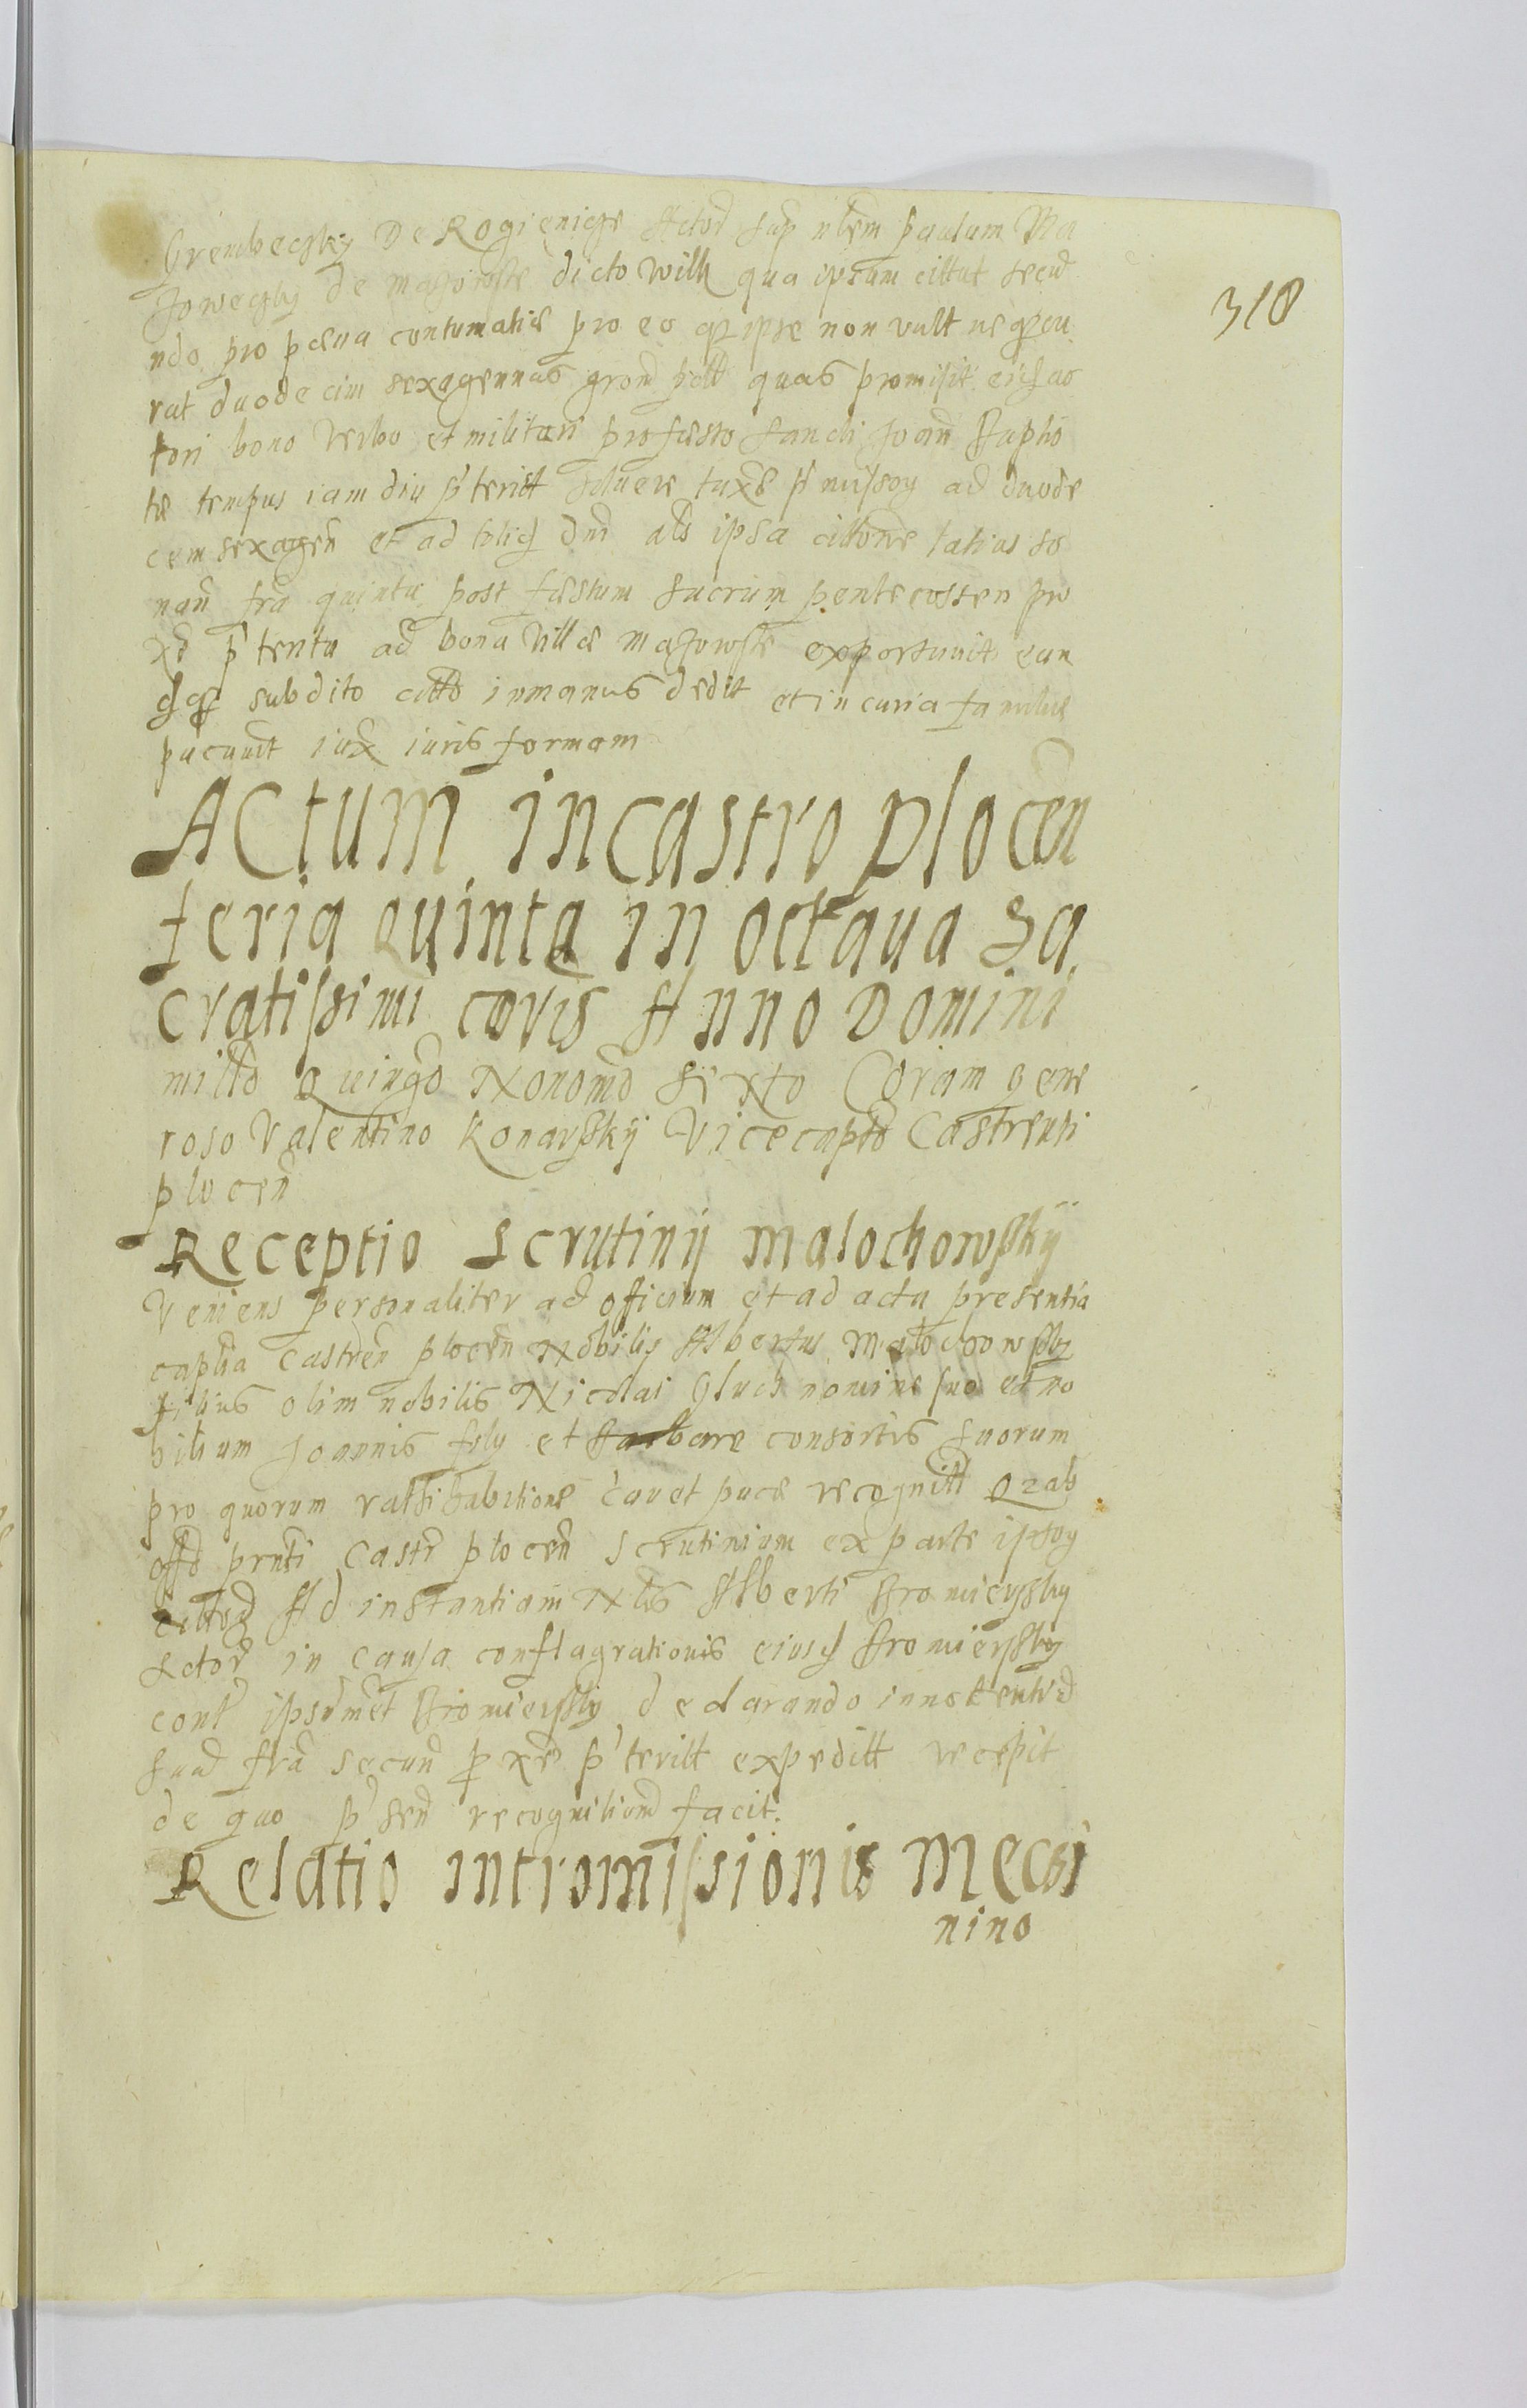 318
Grembeczky De Rogienicze Actor sup nlem paulum Ma
zoweczky de mazowsze dicto Wilk qua ipsum cittat secu
ndo pro pæna contumatiæ pro eo qz ipse non vult neqz cu
rat duodecim sexagennas quas promisit eidac
tori bono Verbo et militari pro fæsto Sancti Joan Baptis
tæ tempus iam diu pterit soluere ad duode
cem sexagen et ad als ipsa citton latius so
nan fra quinta post fæstum Sacrum pentecosten pro
xe pterita ad bona Villæ mazowsze exportauit ean
dqz subdito citto in manus dedit et in curia familiæ
pacauit iux iuris formam
ACtum in Castro plocen
feria quinta in octaua Sa
cratissimi coris Anno Domini
millo Quingo Nonomo Sexto Coram gene
roso Valentino Konarsky Vicecapto Castrensi
plocen
Receptio Scrutinij Malochowsky
Veniens personaliter ad officium et ad acta presentia
capta Castren plocen Nobilis Albertus Malochowsky
filius olim nobilis Nicolai Gluch nomine suo et no
bilium Joannis fily et Barbare consortis suorum
pro quorum rathihabitione cauet pace recognitt Qz ab
offo prnti Castr plocen Scrutinium ex parte ipsoz
cittoz Ad instantiam Nlis Alberti Bromiersky
Actor in Causa conflagrationis eiusd Bromiersky
cont ipsumet Bromiersky declarando innotentia
sua fra secun p xe pterit expeditt recepit
de quo psen recognitiom facit.
Relatio intromissionis Meczi
nino